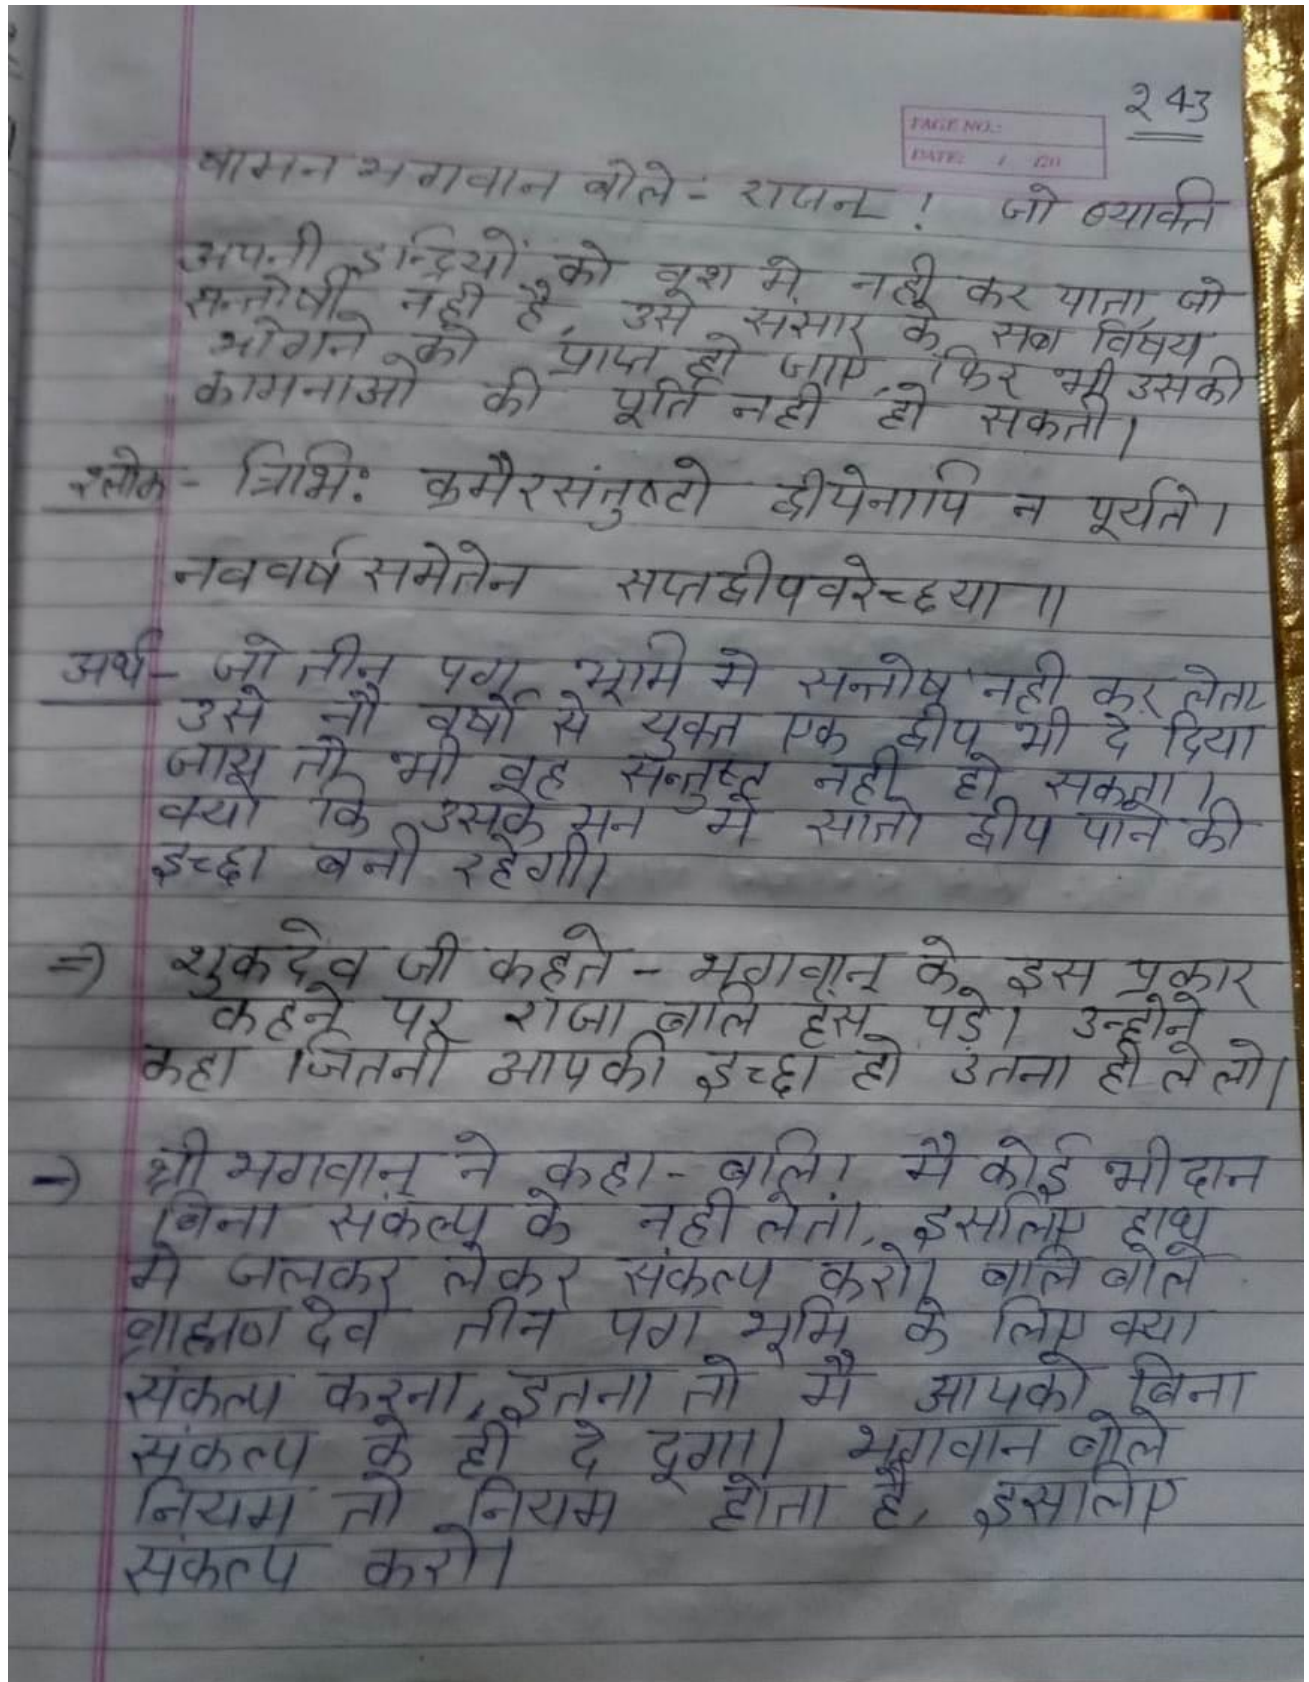 २43
PAGE NO.:
DATE: / /20
वामन भगवान बोले - राजन् ! जो व्यक्ति
अपनी इन्द्रियों को वश मे नही कर पाता, जो
सन्तोषी नही है, उसे संसार के सब विषय
भोगने को प्राप्त हो जाए, फिर भी उसकी
कामनाओ की पूर्ति नही हो सकती।
श्लोक - त्रिभि: क्रमैरसंतुष्टो द्वीपेनापि न पूर्यते।
नववर्ष समेतेन सप्तद्वीपवरेच्छया ॥
अर्थ - जो तीन पग भूमि मे सन्तोष नही कर लेता
उसे नौ वर्षो से युक्त एक द्वीप भी दे दिया
जाय तो भी वह सन्तुष्ट नही हो सकता।
क्यो कि उसके मन मे सातो द्वीप पाने की
इच्छा बनी रहेगी।
=) शुकदेव जी कहते - भगवान् के इस प्रकार
कहने पर राजा बलि हंस पड़े। उन्होने
कहा जितनी आपकी इच्छा हो उतना ही ले लो।
-) श्री भगवान् ने कहा - बलि। मै कोई भी दान
बिना संकल्प के नही लेता, इसलिए हाथ
मे जलकर लेकर संकल्प करो। बलि बोले
ब्राह्मण देव तीन पग भूमि के लिए क्या
संकल्प करना, इतना तो मै आपको बिना
संकल्प के ही दे दूगा। भगवान बोले
नियम तो नियम होता है, इसलिए
संकल्प करो।